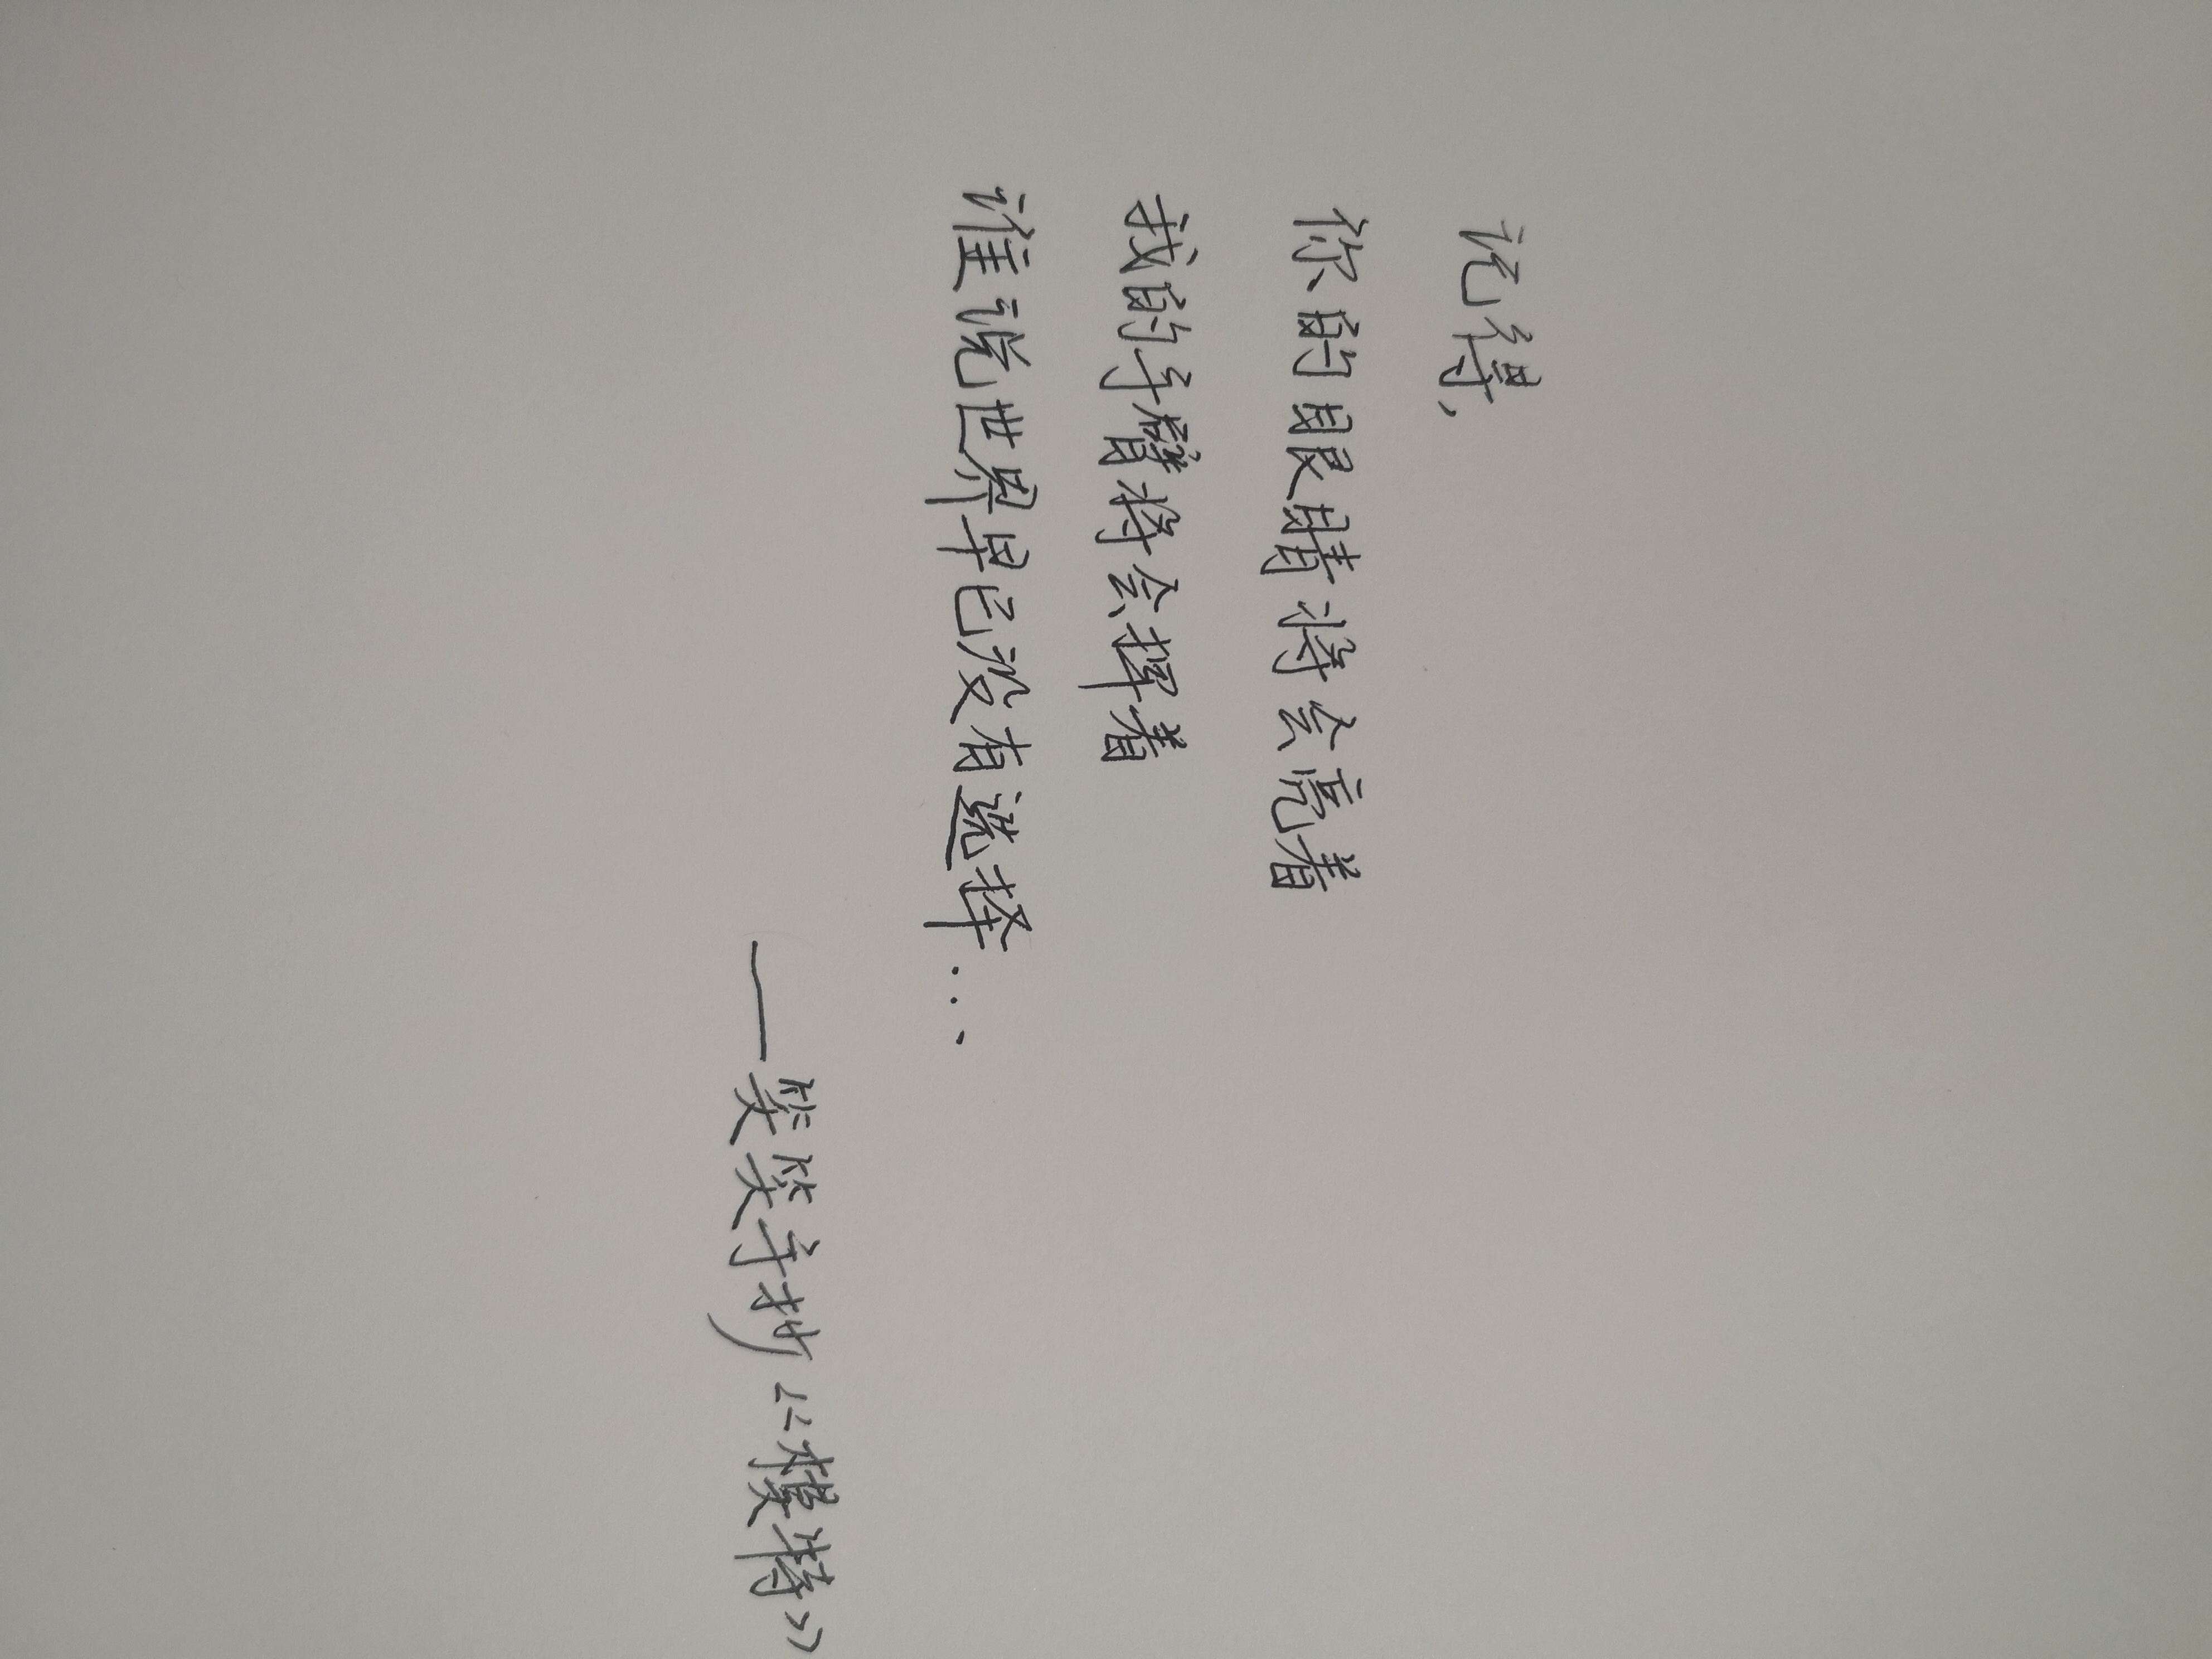 记得,
你的眼睛将会亮着
我的手臂将会挥着
谁说世界早已没有选择...
——笑笑手抄《模特》